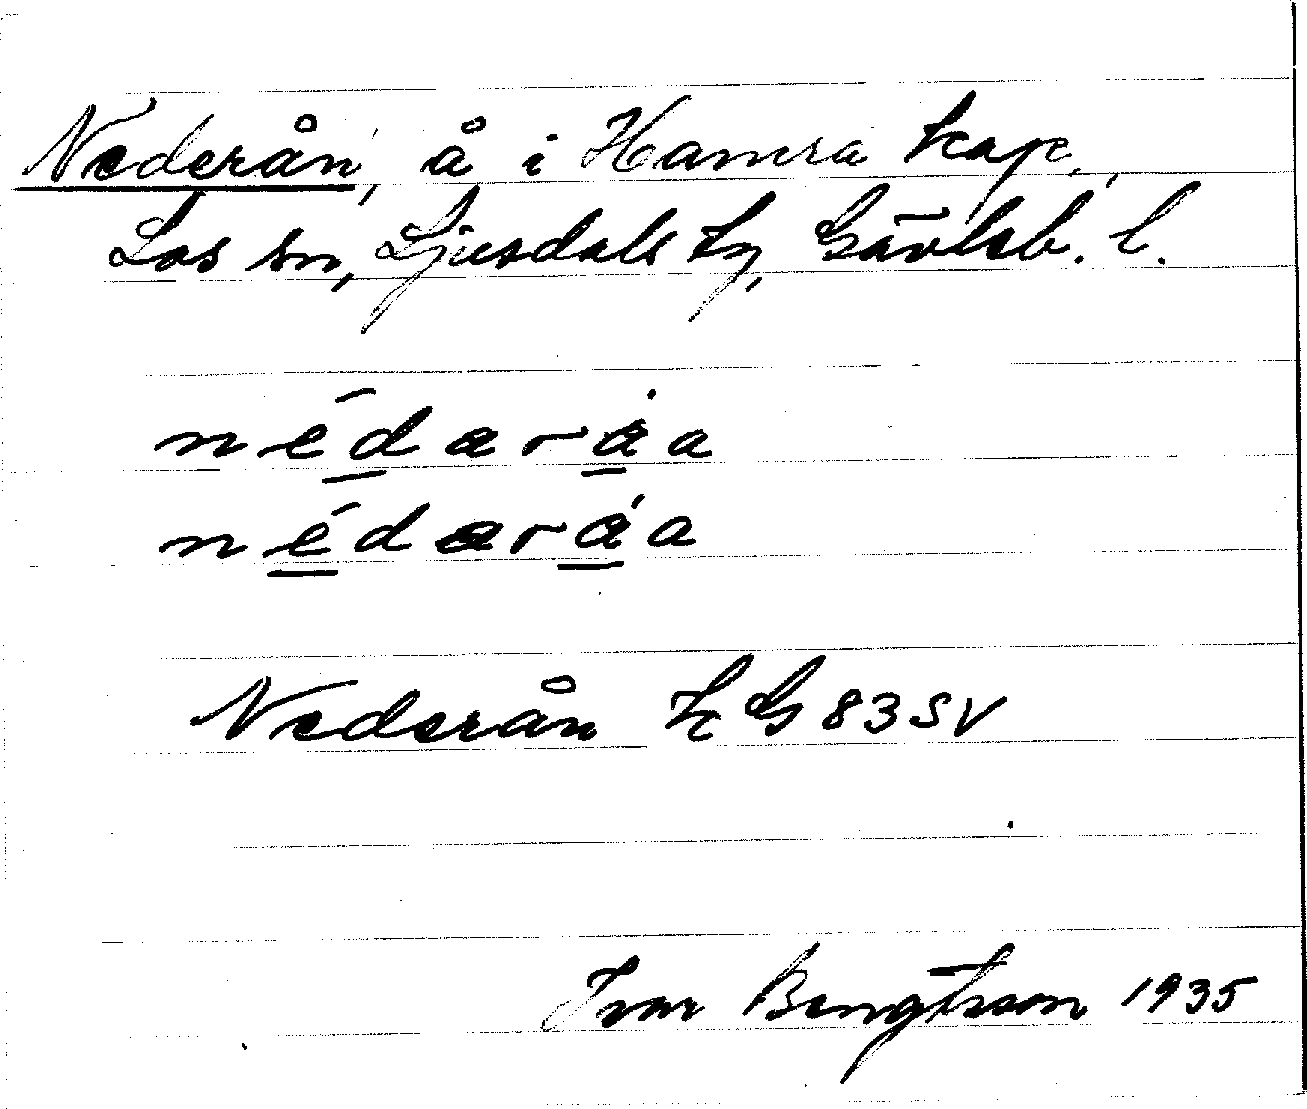 Nederån, å i Hamra kap.,
Los sn, Ljusdals tg, Gävleb. l.
nédaråa
nédaråa
Nederån KG 83 SV
Ivar Bengtsson 1935